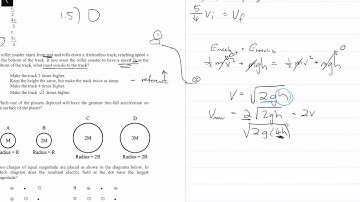 1.5) D
roller coaster starts from rest and rolls down a frictionless track, reaching speed v
the bottom of the track. If you want the roller coaster to have a speed 2v at the
bottom of the track, what must you do to the track?
Make the track 2 times higher.
Keep the height the same, but make the track twice as steep.
Make the track 4 times higher.
Make the track √2 times higher.
reference
Which one of the planets depicted will have the greatest free-fall acceleration on
the surface of the planet?
A
B
C
D
M
2M
2M
3M
Radius = R
Radius = R
Radius = 2R
Radius = 2R
Two charges of equal magnitude are placed as shown in the diagrams below. In
which diagram does the resultant electric field at the dot have the largest
magnitude?
5/4 Vi = Vf
V = √2gh
Vnew = 2√2gh = 2v
√2g(4h)